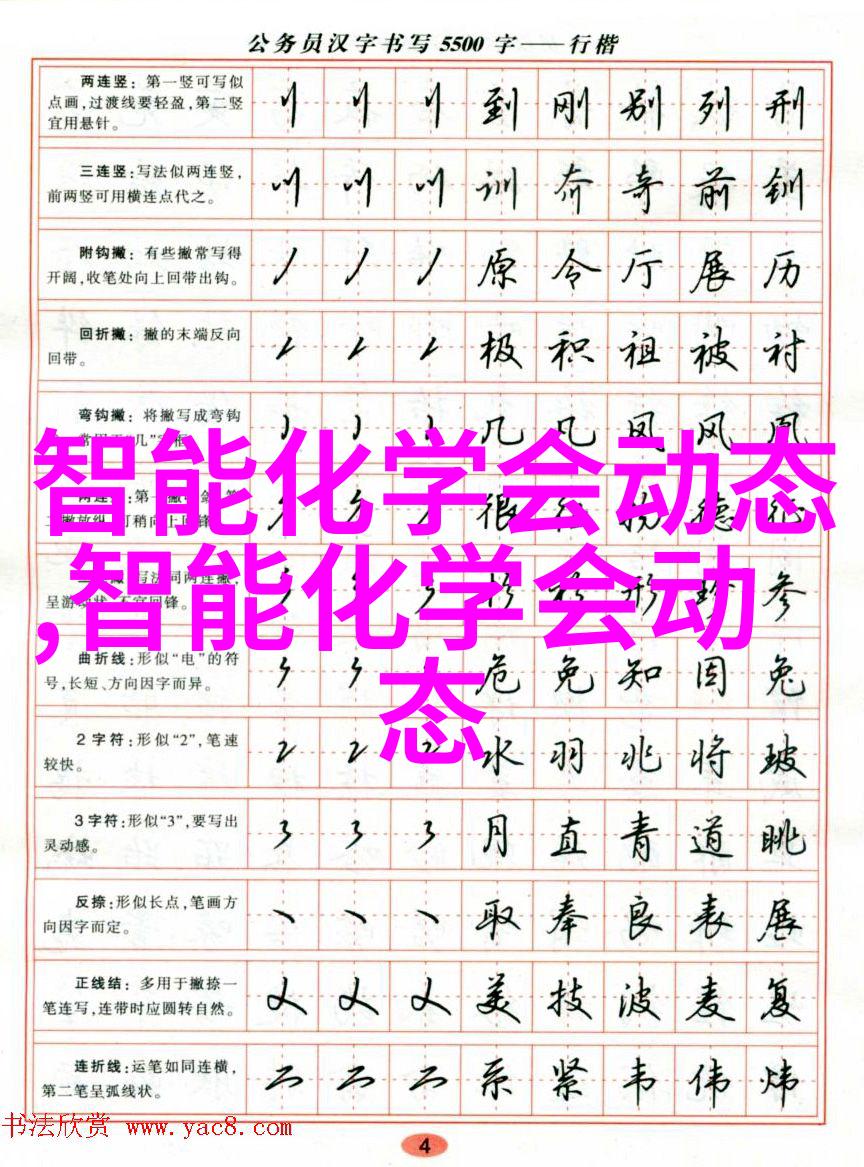 公务员汉字书写5500字——行楷
两连竖：第一竖可写似
点画，过渡线要轻盈，第二竖
宜用悬针。
到 刚 别 列 刑
三连竖：写法似两连竖，
前两竖可用横连点代之。
训 奔 奇 前 钏
附钩撇：有些撇常写得
开阔，收笔处向上回带出钩。
原 令 厅 展 历
回折撇：撇的末端反向
回带。
极 积 祖 被 衬
弯钩撇：将撇写成弯钩
几 凡 凤 风 凰
智能化学会动态
很 德
,智能化学会动
形 珍 参
曲折线：形似“电”的符
号，长短、方向因字而异。
危 免 知 因 兔
态
2字符：形似“2”，笔速
较快。
水 羽 兆 将 玻
3字符：形似“3”，要写出
灵动感。
月 直 青 道 眺
反捺：形似长点，笔画方
向因字而定。
取 奉 良 表 展
正线结：多用于撇捺一
笔连写，连带时应圆转自然。
美 技 波 麦 复
连折线：运笔如同连横，
第二笔呈弧线状。
系 紧 韦 伟 炜
书法欣赏 www.yac8.com
4